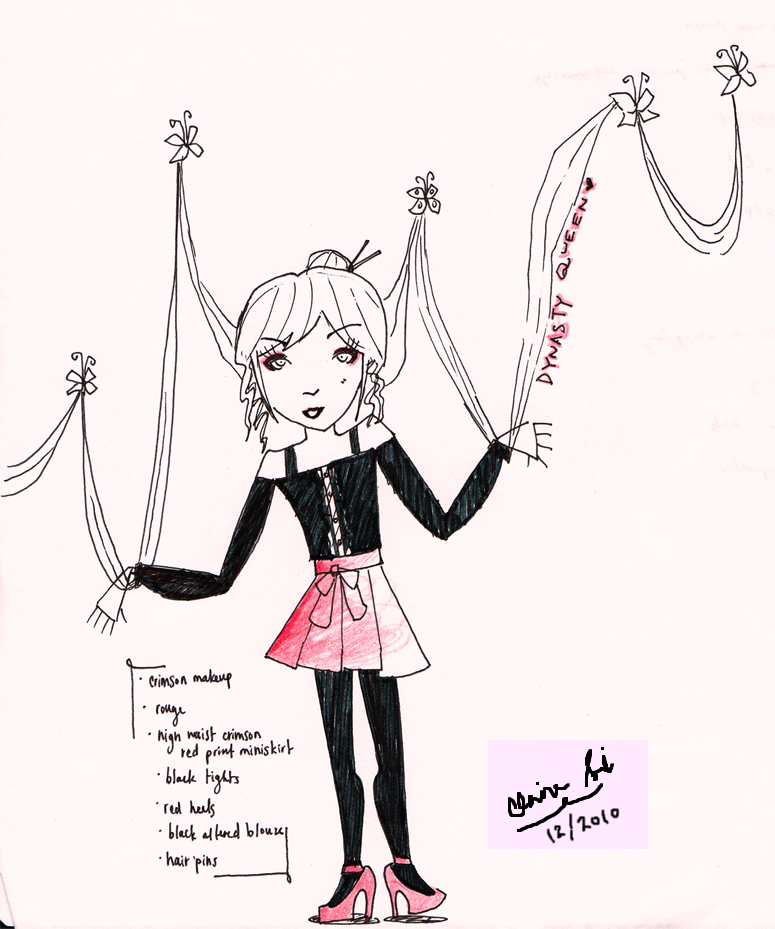 DYNASTY QUEEN♥
· crimson makeup
· rouge
· high waist crimson
red print miniskirt
· black tights
· red heels
· black altered blouse
· hair pins
12/2010